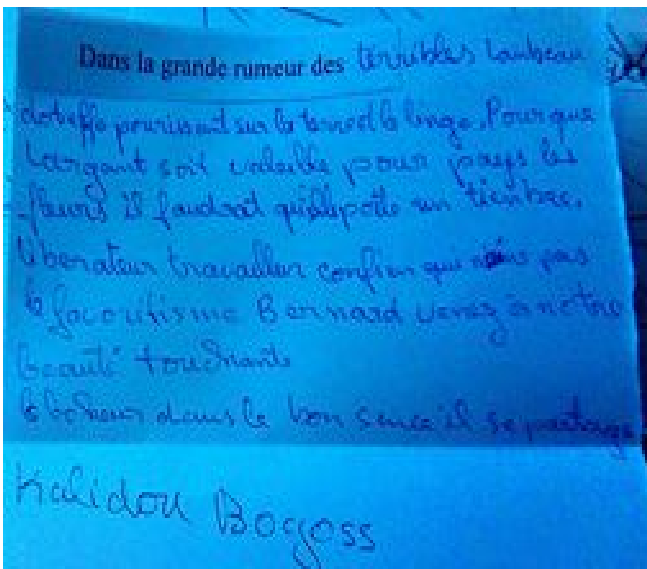 Dans la grande rumeur des terribles Lambeau
d'étoffe pourissant sur la terre et le linge. Pour que
l'argant soit valable pour pays les
fleurs il faudrait quelle porte un timbre.
liberateur travailler confien qui pas
le favoritisme Bernard venez à notre
beauté touchante
le boheur dans le bon sence il se partage
Kalidou Bogoss